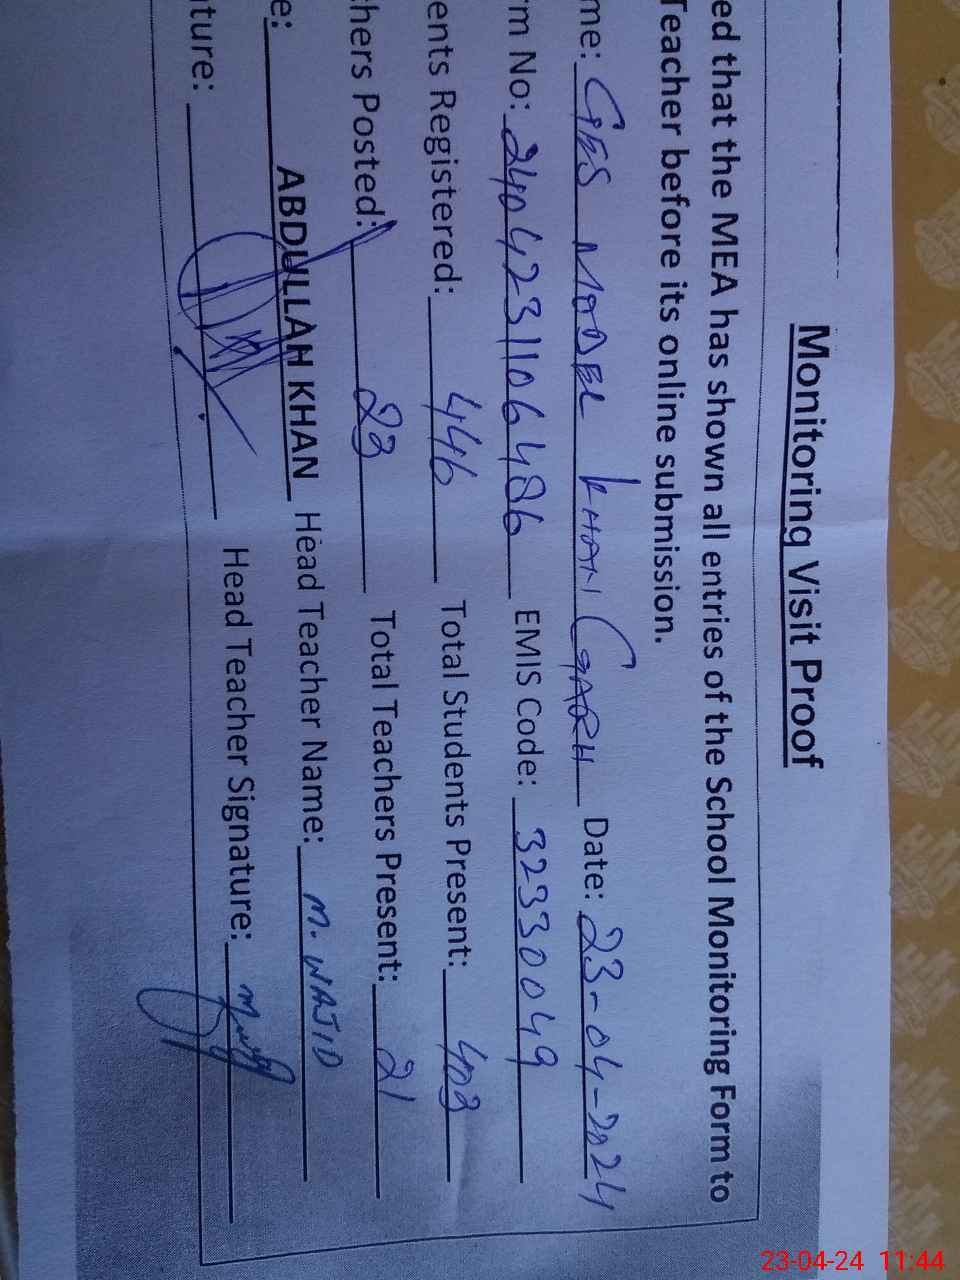 Monitoring Visit Proof
ed that the MEA has shown all entries of the School Monitoring Form to
Teacher before its online submission.
me: GES MODEL KHAN GARH Date: 23-04-2024
rm No: 2404231106486 EMIS Code: 32330049
ents Registered: 446 Total Students Present: 403
hers Posted: 23 Total Teachers Present: 21
e: ABDULLAH KHAN Head Teacher Name: M. WAJID
ture: Head Teacher Signature:
23-04-24 11:44